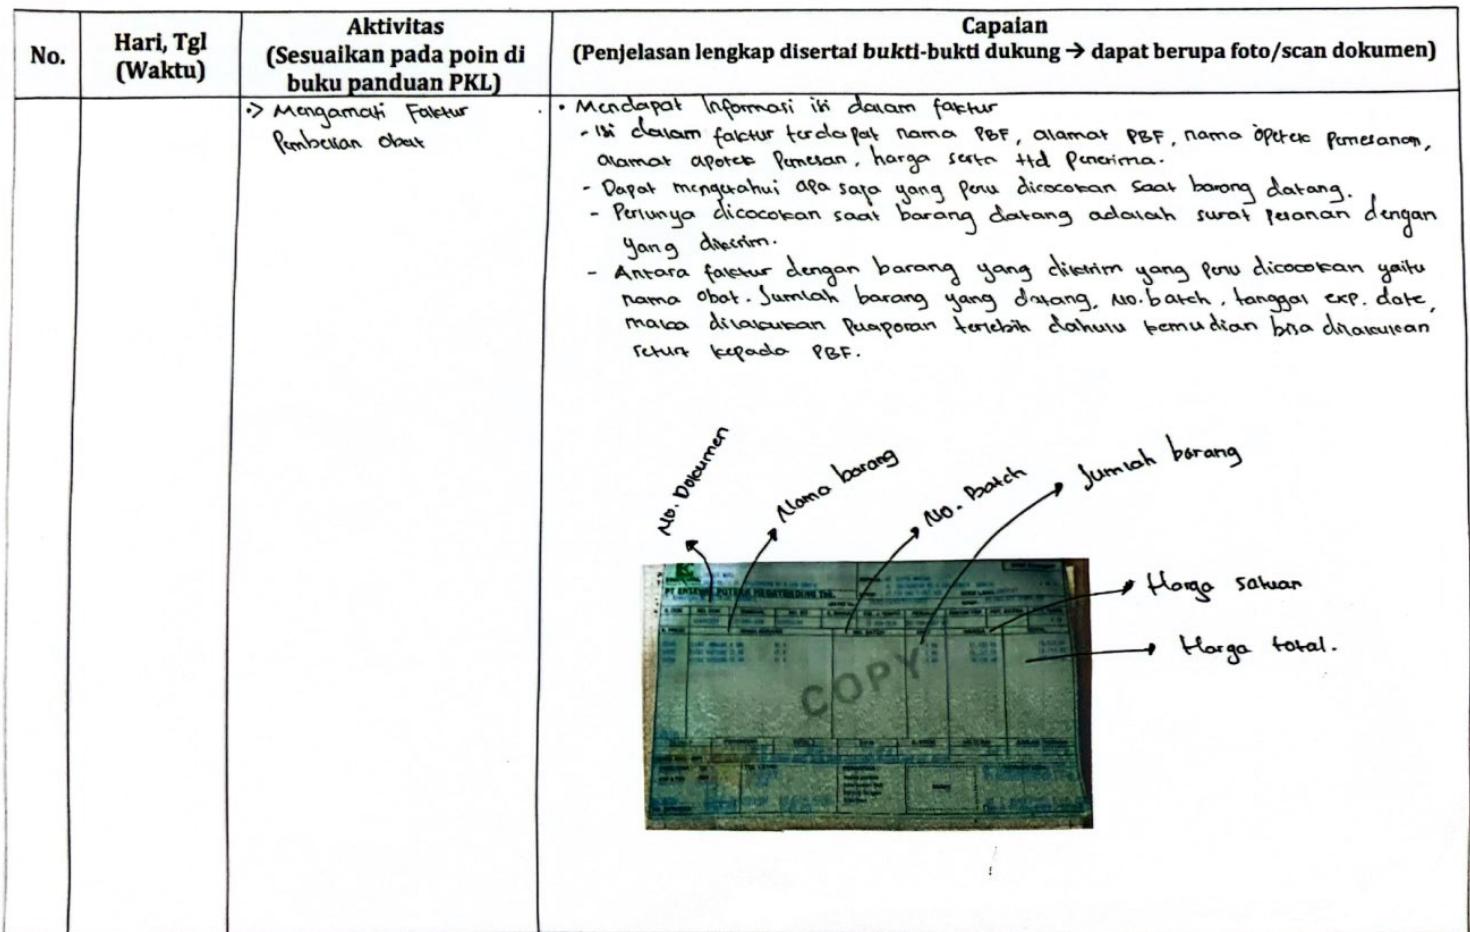 No.
Hari, Tgl
(Waktu)
Aktivitas
(Sesuaikan pada poin di
buku panduan PKL)
Capaian
(Penjelasan lengkap disertai bukti-bukti dukung → dapat berupa foto/scan dokumen)
-> Mengamati Faktur
Pembelian obat
• Mendapat Informasi isi dalam faktur
- Isi dalam faktur terdapat nama PBF, alamat PBF, nama apotek pemesanan,
alamat apotek Pemesan, harga serta ttd Penerima.
- Dapat mengetahui apa saja yang perlu dicocokan saat barang datang.
- Perlunya dicocokan saat barang datang adalah surat pesanan dengan
yang dikirim.
- Antara faktur dengan barang yang dikirim yang perlu dicocokan yaitu
nama obat. Jumlah barang yang datang, No. batch, tanggal exp. date,
maka dilakukan pelaporan terlebih dahulu kemudian bisa dilakukan
return kepada PBF.
No. Dokumen
Nama barang
No. Batch
Jumlah barang
Harga satuan
Harga total.
PT ENSEVAL PUTERA MEGATRADING Tbk.
COPY